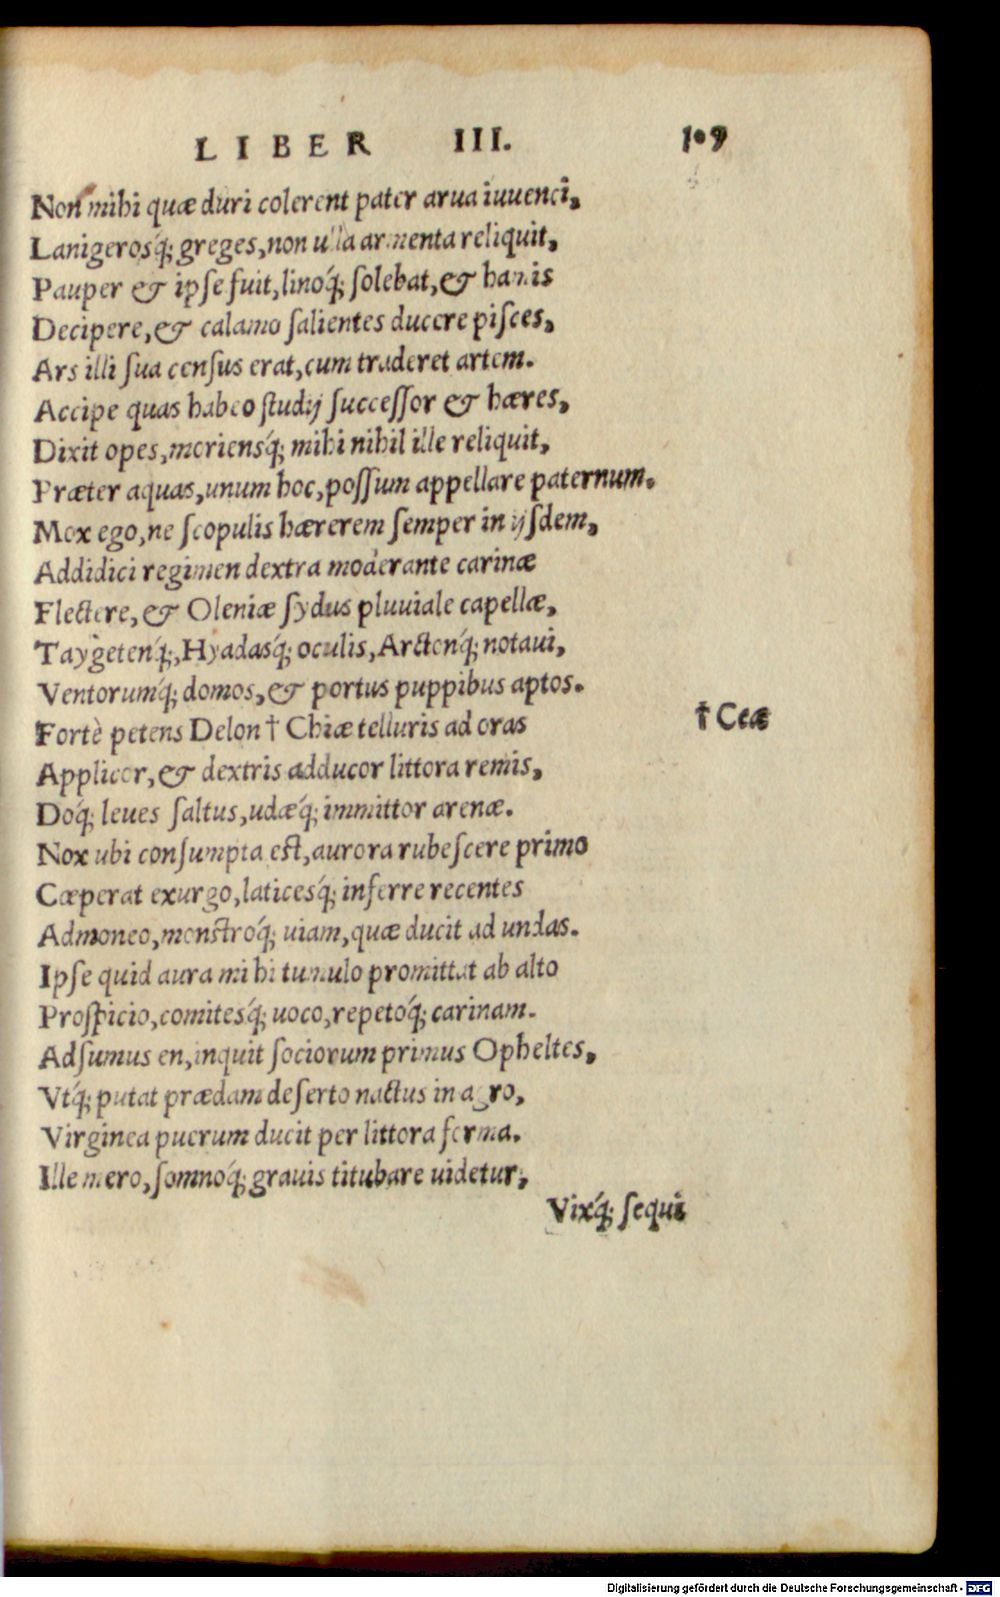 LIBER III. 109
Non mihi quæ duri colerent pater arua iuuenci,
Lanigerosq́; greges, non ulla armenta reliquit,
Pauper & ipse fuit, linoq́; solebat, & hamis
Decipere, & calamo salientes ducere pisces,
Ars illi sua census erat, cum traderet artem.
Accipe quas habeo studij successor & hæres,
Dixit opes, moriensq́; mihi nihil ille reliquit,
Præter aquas, unum hoc, possum appellare paternum.
Mox ego, ne scopulis hærerem semper in ijsdem,
Addidici regimen dextra moderante carinæ
Flectere, & Oleniæ sydus pluuiale capellæ,
Taygetenq́;, Hyadasq́; oculis, Arctonq́; notaui,
Ventorumq́; domos, & portus puppibus aptos.
Fortè petens Delon † Chiæ telluris ad oras
† Ceæ
Applicor, & dextris adducor littora remis,
Doq́; leues saltus, udæq́; immittor arenæ.
Nox ubi consumpta est, aurora rubescere primo
Cœperat exurgo, laticesq́; inferre recentes
Admoneo, monstroq́; uiam, quæ ducit ad undas.
Ipse quid aura mihi tumulo promittat ab alto
Prospicio, comitesq́; uoco, repetoq́; carinam.
Adsumus en, inquit sociorum primus Opheltes,
Vtq́; putat prædam deserto nactus in agro,
Virginea puerum ducit per littora forma.
Ille mero, somnoq́; grauis titubare uidetur,
Vixq́; sequi
Digitalisierung gefördert durch die Deutsche Forschungsgemeinschaft - DFG